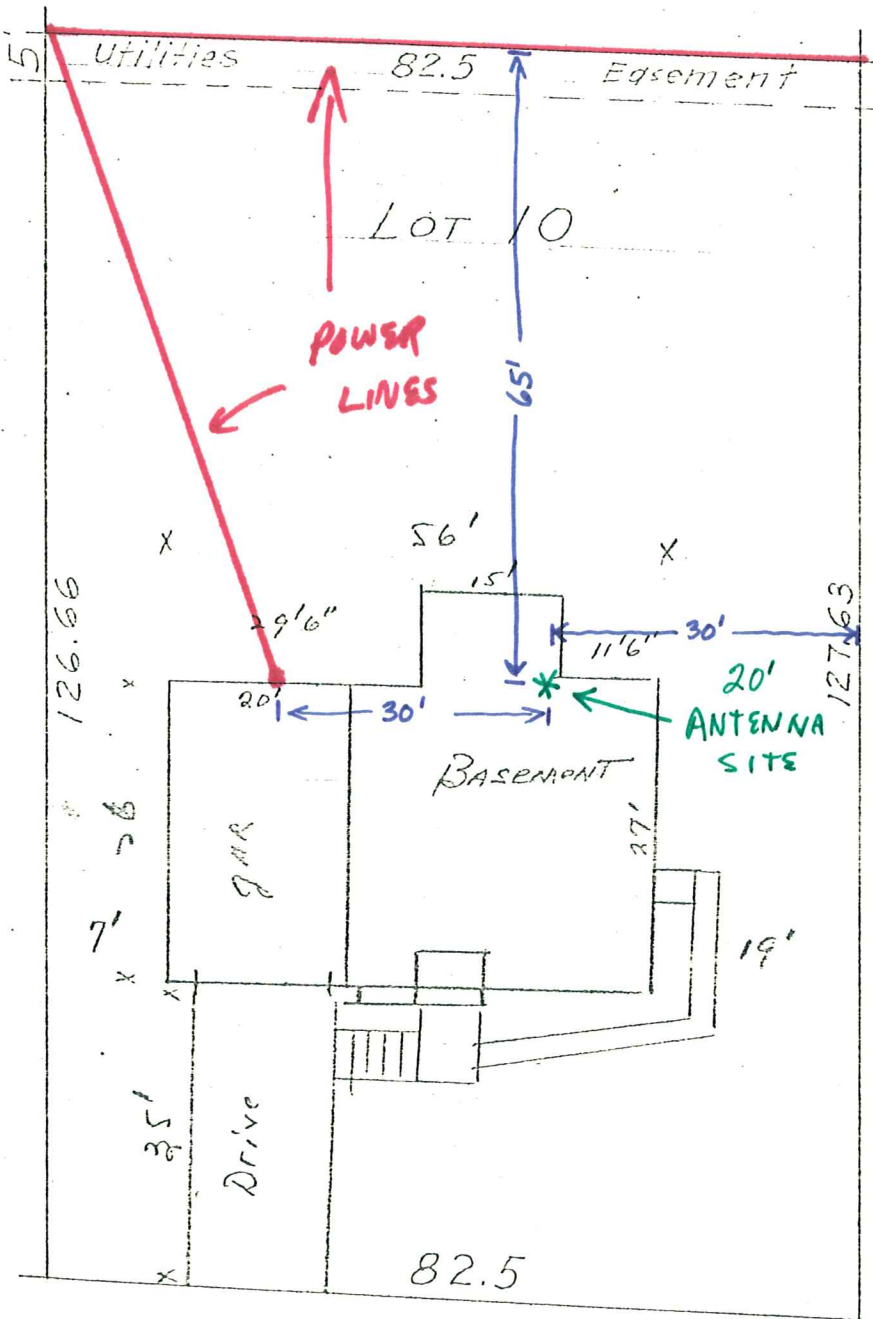 5'
Utilities 82.5 Easement
LOT 10
POWER
LINES
65'
56'
x
x
15'
29'6"
11'6"
30'
126.66
127.63
x
20'
30'
20'
ANTENNA
SITE
BASEMONT
GAR
27'
7'
19'
x
x
35'
Drive
x
82.5